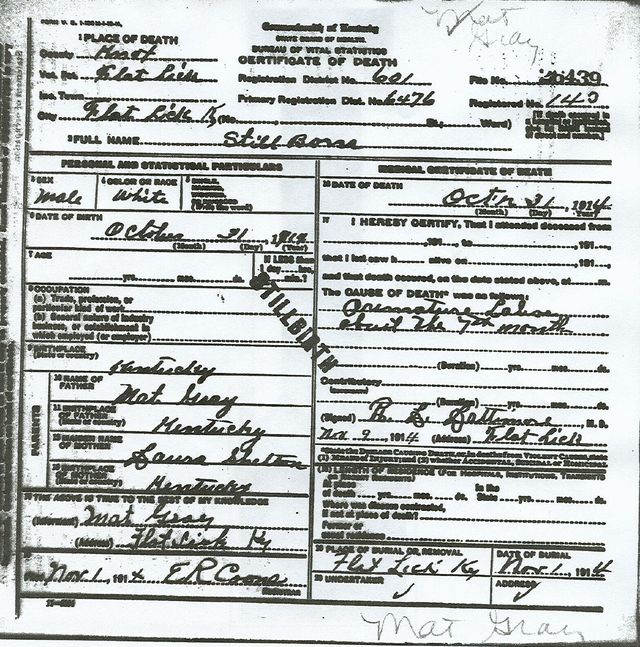 Mat
Gray
Commonwealth of Kentucky
STATE BOARD OF HEALTH
BUREAU OF VITAL STATISTICS
CERTIFICATE OF DEATH
1 PLACE OF DEATH
County Knox
Vot. Pct. Flat Lick
Registration District No. 601
File No. 26439
Inc. Town
Primary Registration Dist. No. 6476
Registered No. 143
City Flat Lick Ky (No. St., Ward)
2 FULL NAME Still Born
PERSONAL AND STATISTICAL PARTICULARS
3 SEX Male
4 COLOR OR RACE White
6 DATE OF BIRTH
October 21, 1914
(Month) (Day) (Year)
7 AGE
yrs. mos. ds.
STILLBIRTH
8 OCCUPATION
(a) Trade, profession, or
particular kind of work
(b) General nature of industry
business, or establishment in
which employed (or employer)
9 BIRTHPLACE
(State or country)
Kentucky
PARENTS
10 NAME OF
FATHER
Mat Gray
11 BIRTHPLACE
OF FATHER
(State or country)
Kentucky
12 MAIDEN NAME
OF MOTHER
Laura Shelton
13 BIRTHPLACE
OF MOTHER
Kentucky
14 THE ABOVE IS TRUE TO THE BEST OF MY KNOWLEDGE
(Informant) Mat Gray
(Address) Flat Lick Ky
15
Filed Nov. 1, 1914 E R Coons
REGISTRAR
MEDICAL CERTIFICATE OF DEATH
16 DATE OF DEATH
Octr 21, 1914
(Month) (Day) (Year)
17 I HEREBY CERTIFY, That I attended deceased from
, 191 , to , 191 ,
that I last saw h alive on , 191 ,
and that death occured, on the date stated above, at m.
The CAUSE OF DEATH* was as follows:
Premature Labor
about the 7th month
(Duration) yrs. mos. ds.
Contributory
(Duration) yrs. mos. ds.
(Signed) M. D.
Nov 9, 1914 (Address) Flat Lick
*State the DISEASE CAUSING DEATH, or, in deaths from VIOLENT CAUSES, state
(1) MEANS OF INJURY; and (2) whether ACCIDENTAL, SUICIDAL, OR HOMICIDAL
18 LENGTH OF RESIDENCE (FOR HOSPITALS, INSTITUTIONS, TRANSIENTS
OR RECENT RESIDENTS)
At place In the
of death yrs. mos. ds. State yrs. mos. ds.
Where was disease contracted,
if not at place of death?
Former or
usual residence
19 PLACE OF BURIAL OR REMOVAL
Flat Lick Ky
DATE OF BURIAL
Nov. 1, 1914
20 UNDERTAKER
ADDRESS
Mat Gray